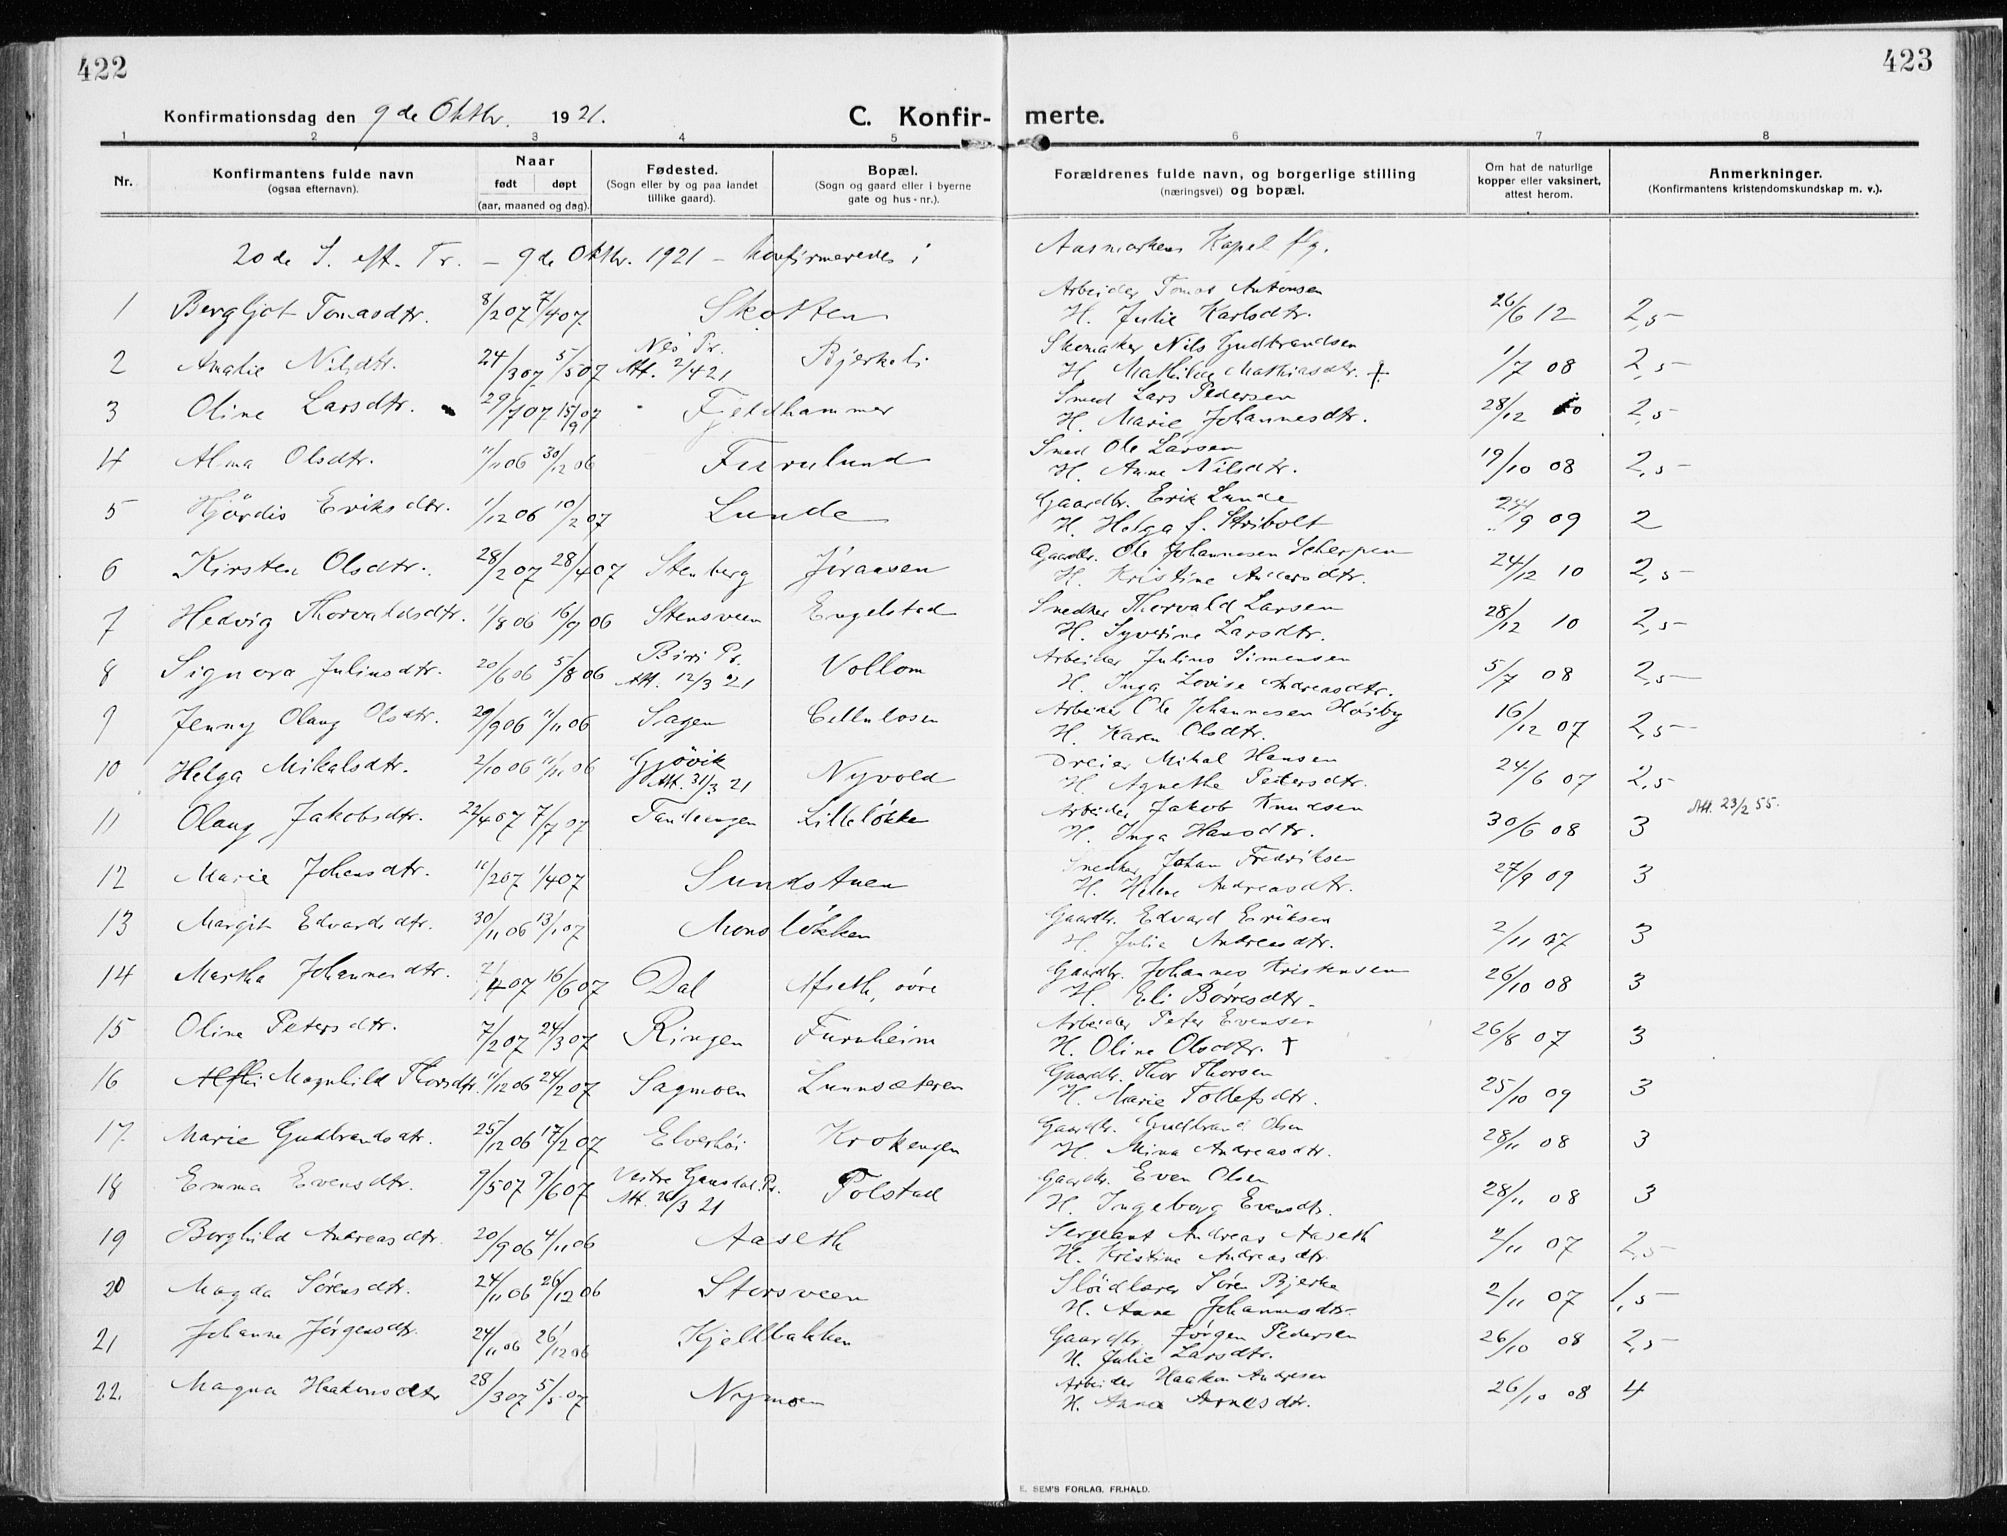 422
423
Konfirmationsdag den 9de Oktbr. 1921.
C. Konfir-merte.
1 2 3 4 5 6 7 8
Nr.
Konfirmantens fulde navn (ogsaa efternavn).
Naar født døpt (aar, maaned og dag).
Fødested. (Sogn eller by og paa landet tillike gaard).
Bopæl. (Sogn og gaard eller i byerne gate og hus-nr.).
Forældrenes fulde navn, og borgerlige stilling (næringsvei) og bopæl.
Om hat de naturlige kopper eller vaksinert, attest herom.
Anmerkninger. (Konfirmantens kristendomskundskap m. v.).
20de S. eft. Tr. – 9de Oktbr. 1921 – konfirmeredes i Aasmarkens Kapel flg.
1 Bergljot Tomasdtr. 8/2 07 7/4 07 Skotten Arbeider Tomas Antonsen
H. Julie Karlsdtr. 26/6 12 2,5
2 Amalie Nilsdtr. 24/3 07 5/5 07 Nes Pr. Att. 2/4 21 Bjerkeli Skomaker Nils Gudbrandsen
H. Mathilde Mathiasdtr. † 1/7 08 2,5
3 Oline Larsdtr. 29/7 07 15/9 07 Fjeldhammer Smed Lars Pedersen
H. Marie Johannesdtr. 28/12 10 2,5
4 Alma Olsdtr. 11/11 06 30/12 06 Furulund Smed Ole Larsen
H. Anne Nilsdtr. 19/10 08 2,5
5 Hjördis Eriksdtr. 1/12 06 10/2 07 Lunde Gaardbr. Erik Lunde
H. Helga f. Stribolt /9 09 2
6 Kirsten Olsdtr. 28/2 07 28/4 07 Stenberg Jöraasen Gaardbr. Ole Johannesen Scherpen
H. Kristine Andersdtr. 24/12 10 2,5
7 Hedvig Thorvaldsdtr. 1/8 06 16/9 06 Stensveen Engelstad Snedker Thorvald Larsen
H. Syverine Larsdtr. 28/12 10 2,5
8 Signora Juliusdtr. 20/6 06 5/8 06 Biri Pr. Att. 12/3 21 Vollom Arbeider Julius Simensen
H. Inga Lovise Andreasdtr. 5/7 08 2,5
9 Jenny Olaug Olsdtr. 29/9 06 11/11 06 Sagen Cellulosen Arbeider Ole Johannesen Høiby
H. Karen Olsdtr. 16/12 07 2,5
10 Helga Mikalsdtr. 2/10 06 11/11 06 Gjøvik Att. 31/3 21 Nyvold Dreier Mikal Hansen
H. Agnethe Petersdtr. 24/6 07 2,5
11 Olaug Jakobsdtr. 22/4 07 7/7 07 Tandengen Lilleløkke Arbeider Jakob Knudsen
H. Inga Hansdtr. 30/6 08 3 Att. 23/2 55.
12 Marie Johansdtr. 11/2 07 1/4 07 Sundstuen Snedker Johan Fredriksen
H. Helene Andreasdtr. 27/9 09 3
13 Margit Edvardsdtr. 30/11 06 13/1 07 Monsløkken Gaardbr. Edvard Eriksen
H. Julie Andreasdtr. 2/11 07 3
14 Martha Johannesdtr. 2/4 07 16/6 07 Dal Afseth, övre Gaardbr. Johannes Kristensen
H. Eli Børresdtr. 26/10 08 3
15 Oline Petersdtr. 7/2 07 24/3 07 Ringen Furuheim Arbeider Peter Evensen
H. Oline Olsdtr. † 26/8 07 3
16 Magnhild Thorsdtr. 11/12 06 24/2 07 Sagmoen Lunnsæteren Gaardbr. Thor Thorsen
H. Marie Tollefsdtr. 25/10 09 3
17. Marie Gudbrandsdtr. 25/12 06 17/2 07 Elverhöi Krokengen Gaardbr. Gudbrand Olsen
H. Mina Andreasdtr. 28/11 08 3
18 Emma Evensdtr. 9/5 07 9/6 07 Vestre Gausdal Pr. Att. /3 21 Tolstad Gaardbr. Even Olsen
H. Ingeborg Evensdtr. 28/11 08 3
19 Borghild Andreasdtr. 20/9 06 4/11 06 Aaseth Sergeant Andreas Aaseth
H. Kristine Andreasdtr. 2/11 07 2,5
20 Magda Sörensdtr. 24/11 06 26/12 06 Storsveen Slöidlærer Sören Bjerke
H. Anne Johannesdtr. 2/11 07 1,5
21 Johanne Jørgensdtr. 24/11 06 26/12 06 Kjellbakken Gaardbr. Jørgen Pedersen
H. Julie Larsdtr. 26/10 08 2,5
22. Magna Haakensdtr 28/3 07 5/5 07 Nymoen Arbeider Haaken Andresen
H. Anna Arnesdtr. 26/10 08 4
E. SEM'S FORLAG, FR.HALD.